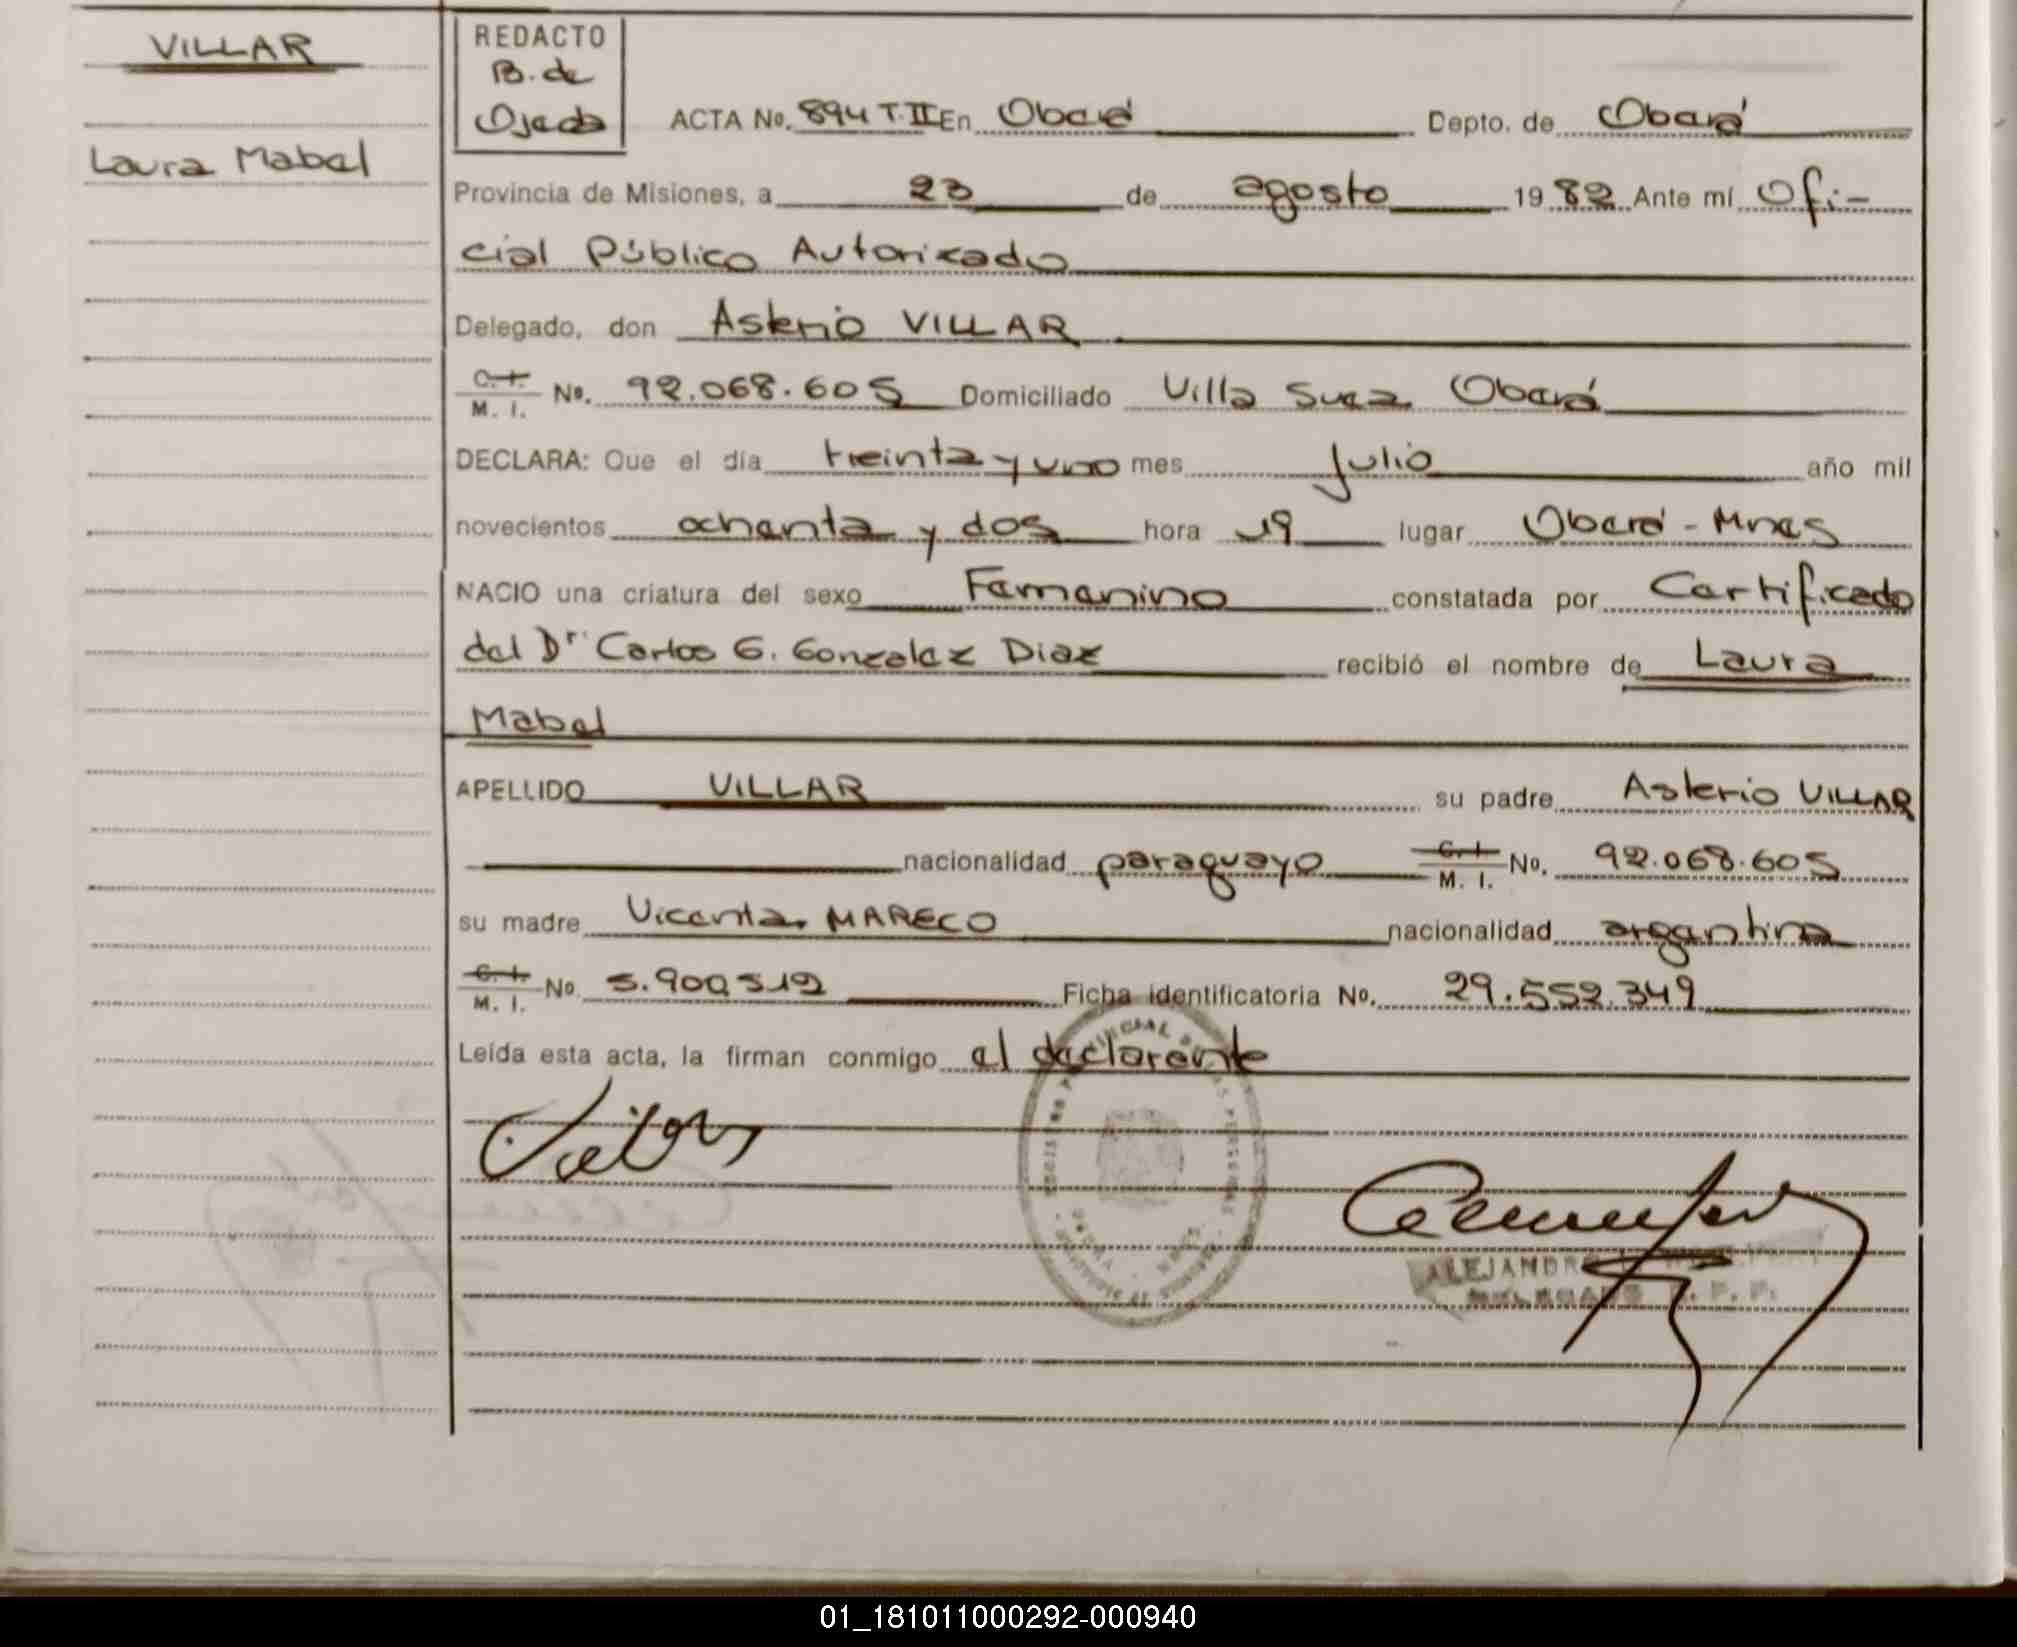 VILLAR
Laura Mabel
REDACTO
B. de
Ojeda
ACTA No. 894 T.II En Oberá Depto. de Oberá
Provincia de Misiones, a 23 de agosto 1982 Ante mí Ofi-
cial Público Autorizado
Delegado, don Asterio VILLAR
C. I. / M. I. No. 92.068.605 Domiciliado Villa Suea Oberá
DECLARA: Que el día treinta y uno mes julio año mil
novecientos ochenta y dos hora 19 lugar Oberá - Mnes
NACIO una criatura del sexo Femenino constatada por Certificado
del Dr Carlos G. Gonzalez Diaz recibió el nombre de Laura
Mabel
APELLIDO VILLAR su padre Asterio VILLAR
nacionalidad paraguayo C. I. / M. I. No. 92.068.605
su madre Vicenta MARECO nacionalidad argentina
C. I. / M. I. No 5.900.512 Ficha identificatoria No. 29.552.349
Leída esta acta, la firman conmigo el declarante
ALEJANDRO
DELEGADO R. P. P.
01_181011000292-000940